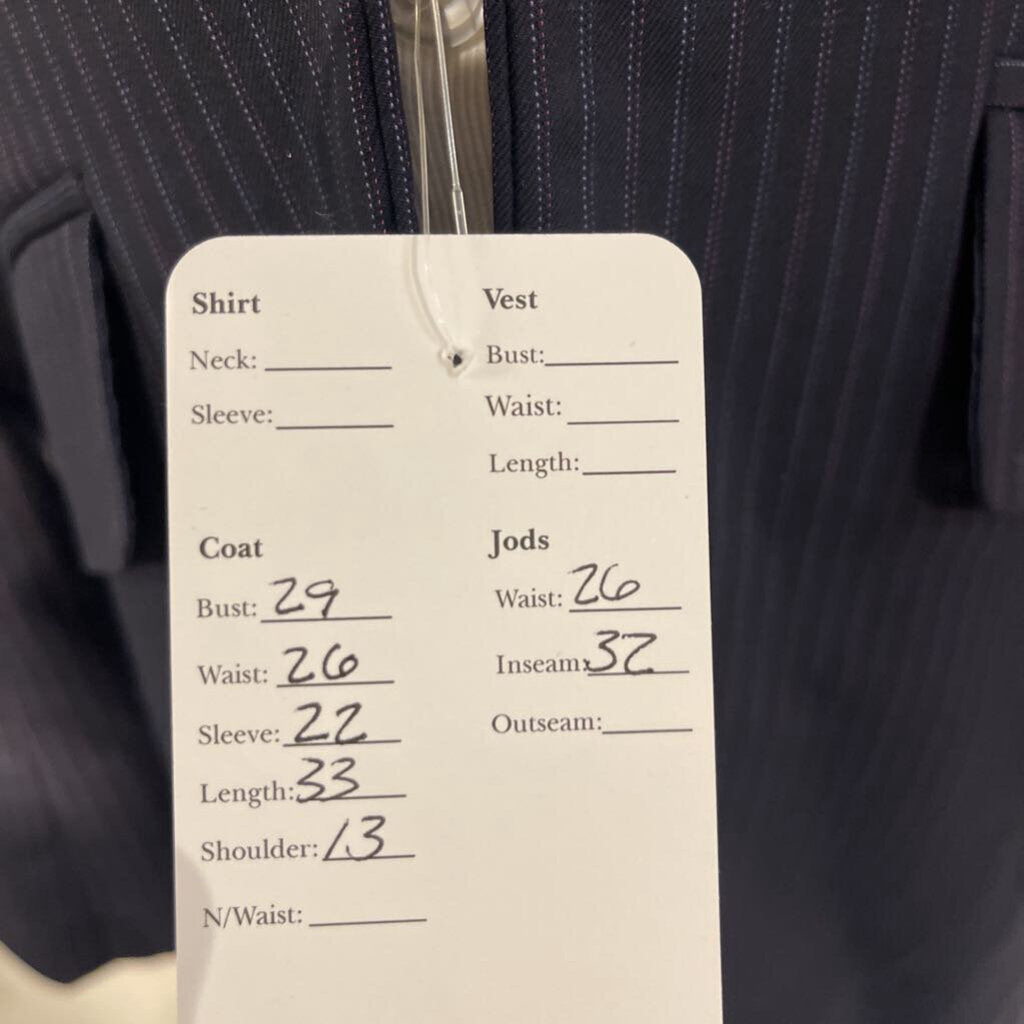 Shirt
Neck:
Sleeve:
Vest
Bust:
Waist:
Length:
Coat
Bust: 29
Waist: 26
Sleeve: 22
Length: 33
Shoulder: 13
N/Waist:
Jods
Waist: 26
Inseam: 32
Outseam: